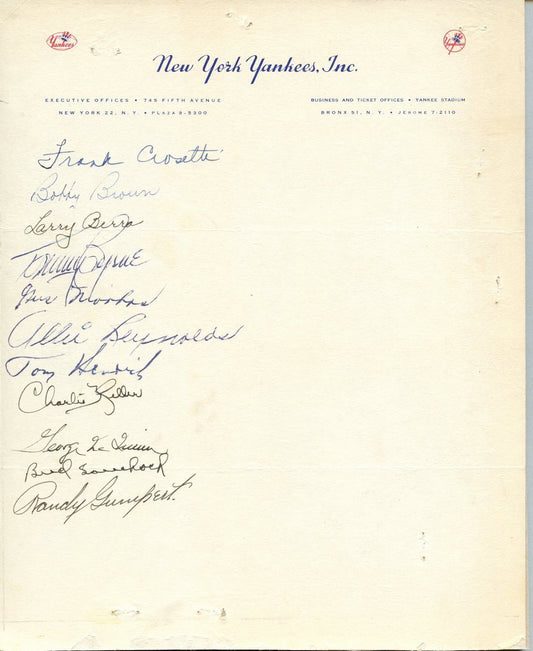 Yankees
New York Yankees, Inc.
EXECUTIVE OFFICES • 745 FIFTH AVENUE
NEW YORK 22, N. Y. • PLAZA 9-5300
BUSINESS AND TICKET OFFICES • YANKEE STADIUM
BRONX 51, N. Y. • JEROME 7-2110
Frank Crosetti
Bobby Brown
Larry Berra
Tommy Byrne
Gus
Allie Reynolds
Tom Henrich
Charlie Keller
George
Bud
Randy Gumpert.